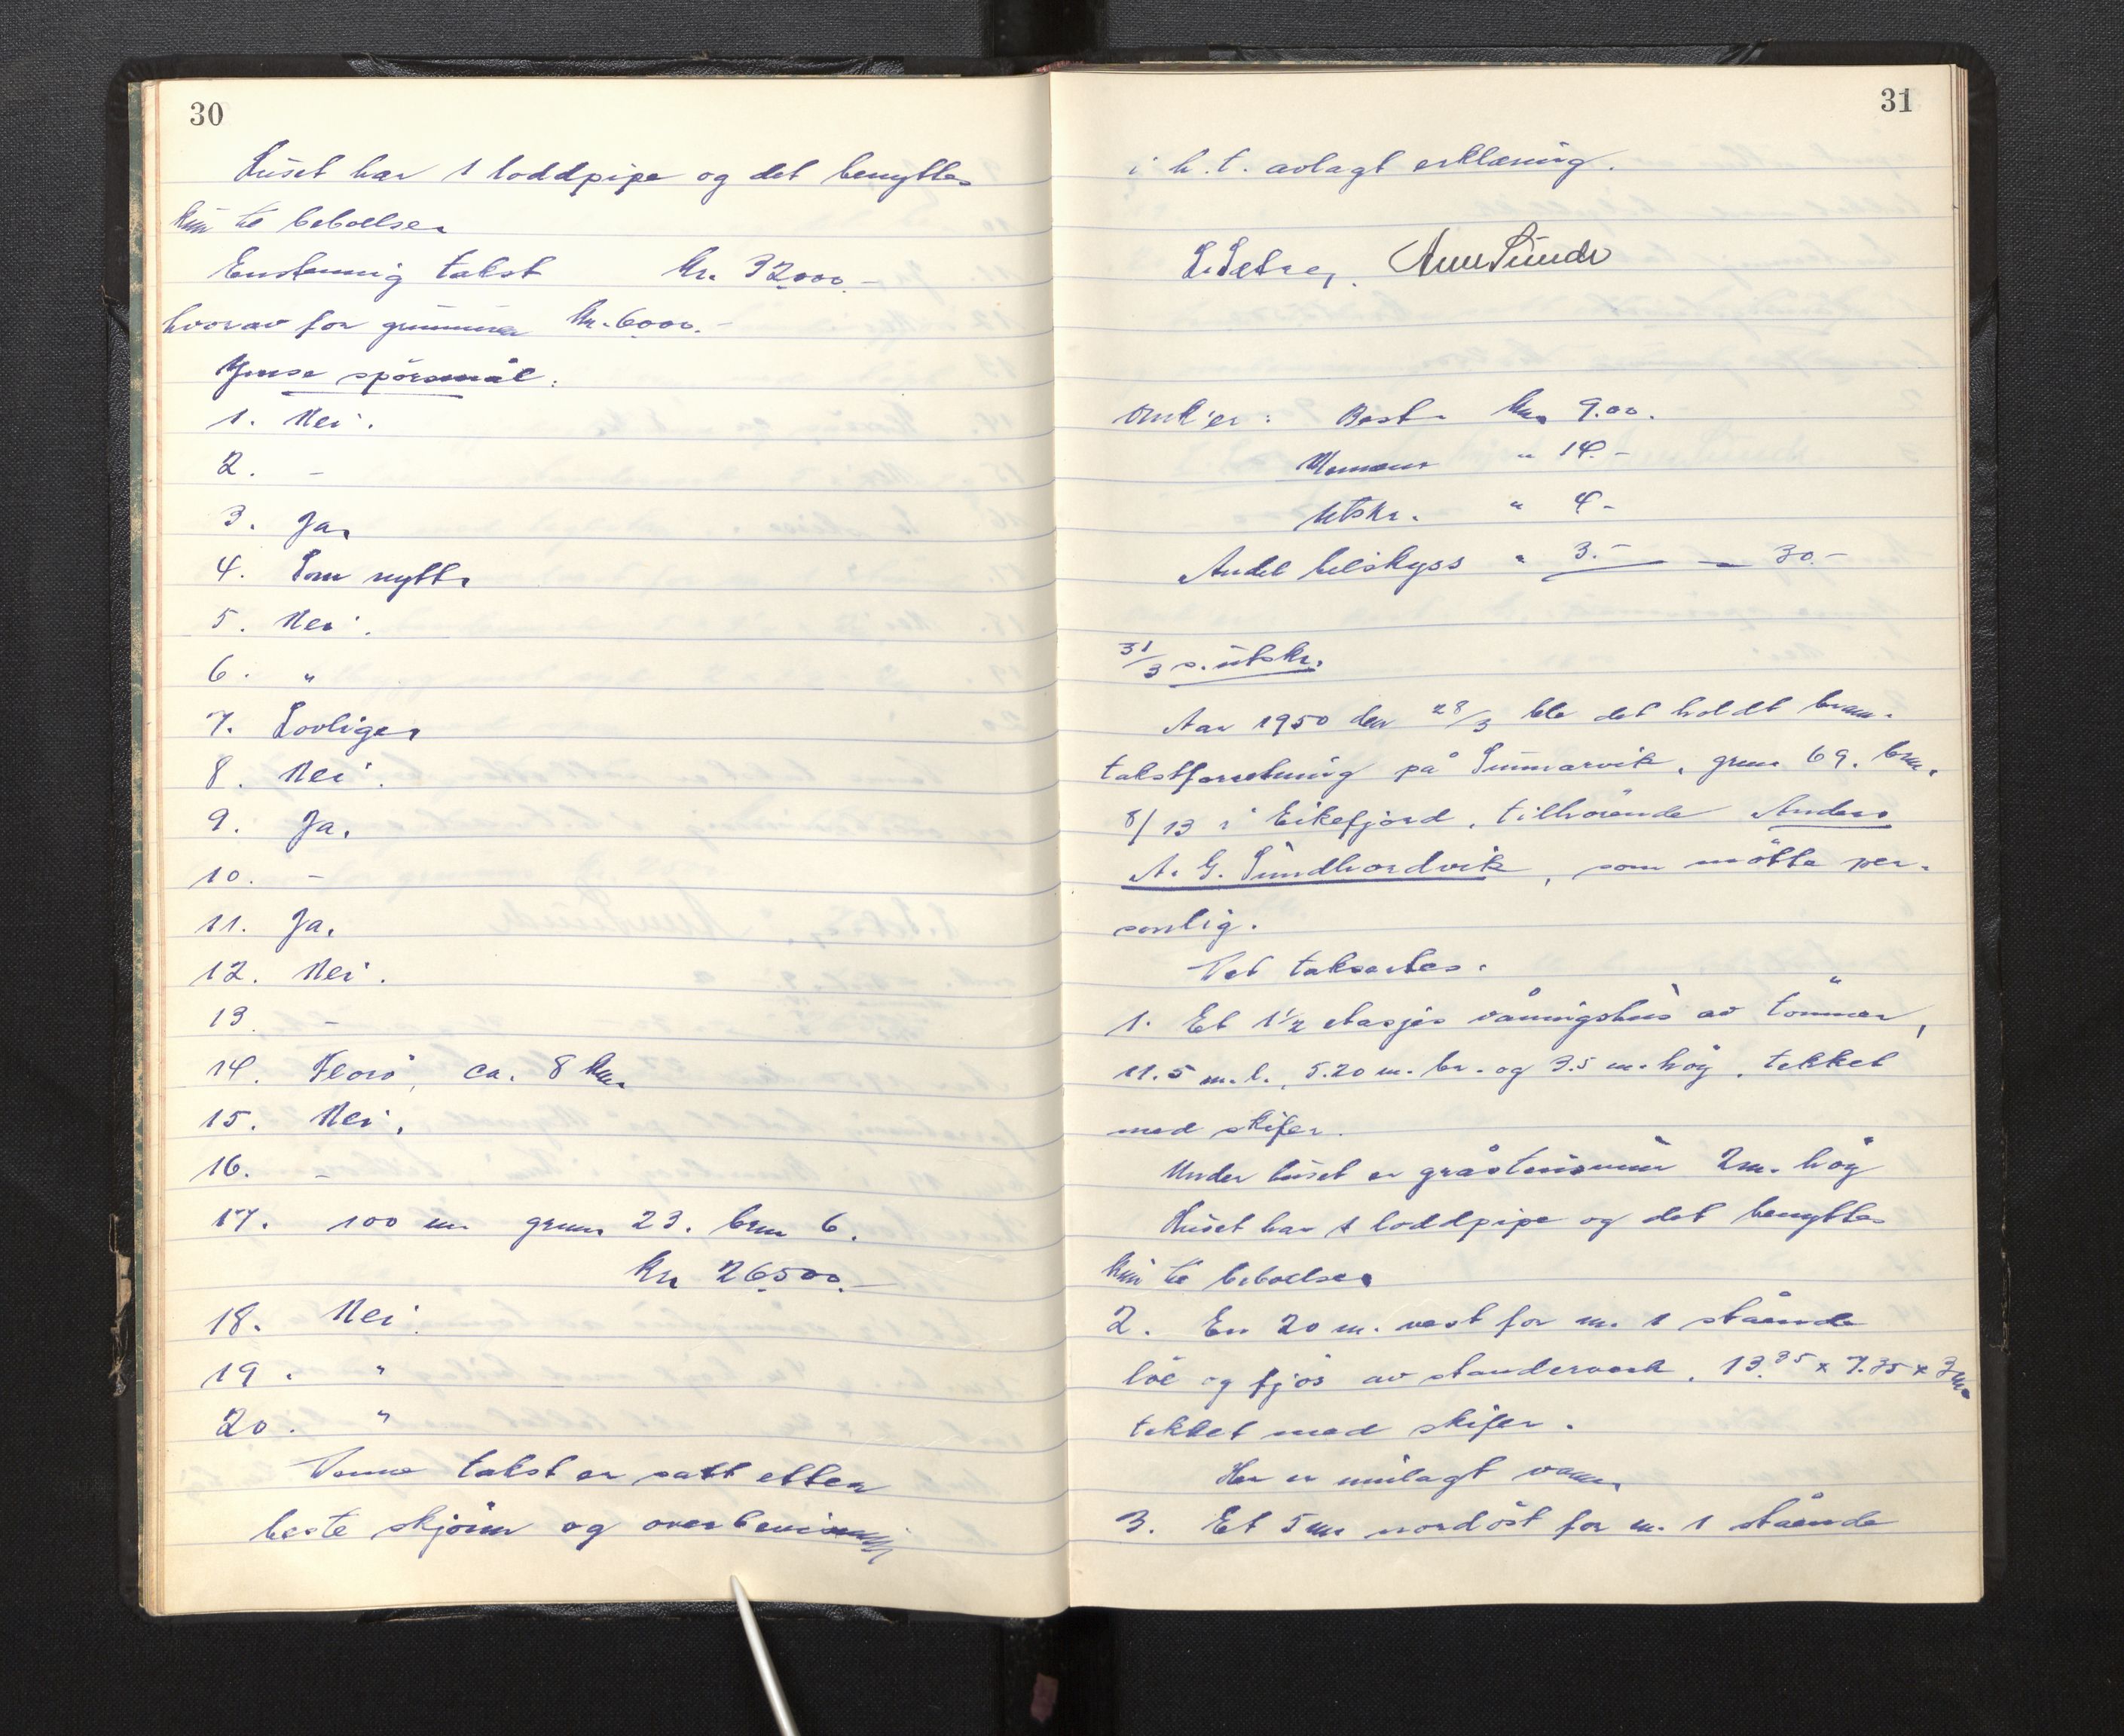 30
Huset har 1 loddpipe og det benyttes
kun til beboelse.
Enstemmig takst kr. 32000.-
hvorav for grunnmur kr. 6000.-
Ymse spörsmål:
1. Nei.
2. -
3. Ja.
4. Som nytt.
5. Nei.
6. "
7. Lovlige.
8. Nei.
9. Ja.
10. -
11. Ja.
12. Nei.
13. -
14. Florö, ca. 8 km.
15. Nei.
16. -
17. 100 m. grnr. 23. brnr 6.
kr. 26500.-
18. Nei.
19. "
20. "
Denne takst er satt etter
beste skjönn og overbevisning
31
i h.t. avlagt erklæring.
L. Sætre,
Omk'er: Best. kr. 9.00.
" 14.-
Utskr. " 4.-
Andel bilskyss " 3.- - 30.-
31/3 s. utskr.
Aar 1950 den 28/3 ble det holdt brann-
takstforretning på Sunnarvik, grnr 69. brnr.
8/13 i Eikefjord, tilhörende Anders
A. G. Sundhordvik, som mötte per-
sonlig.
Det takseres:
1. Et 1½ etasjes våningshus av tömmer,
11.5 m. l., 5.20 m. br. og 3.5 m. höy, tekket
med skifer.
Under huset er gråsteinsmur 2 m. höy
Huset har 1 loddpipe og det benyttes
kun til beboelse.
2. En 20 m. vest for nr. 1 stående
löe og fjös av standerverk, 13.35 x 7.35 x 3 m.
tekket med skifer.
Her er innlagt vann.
3. Et 5 m. nordöst for nr. 1 stående